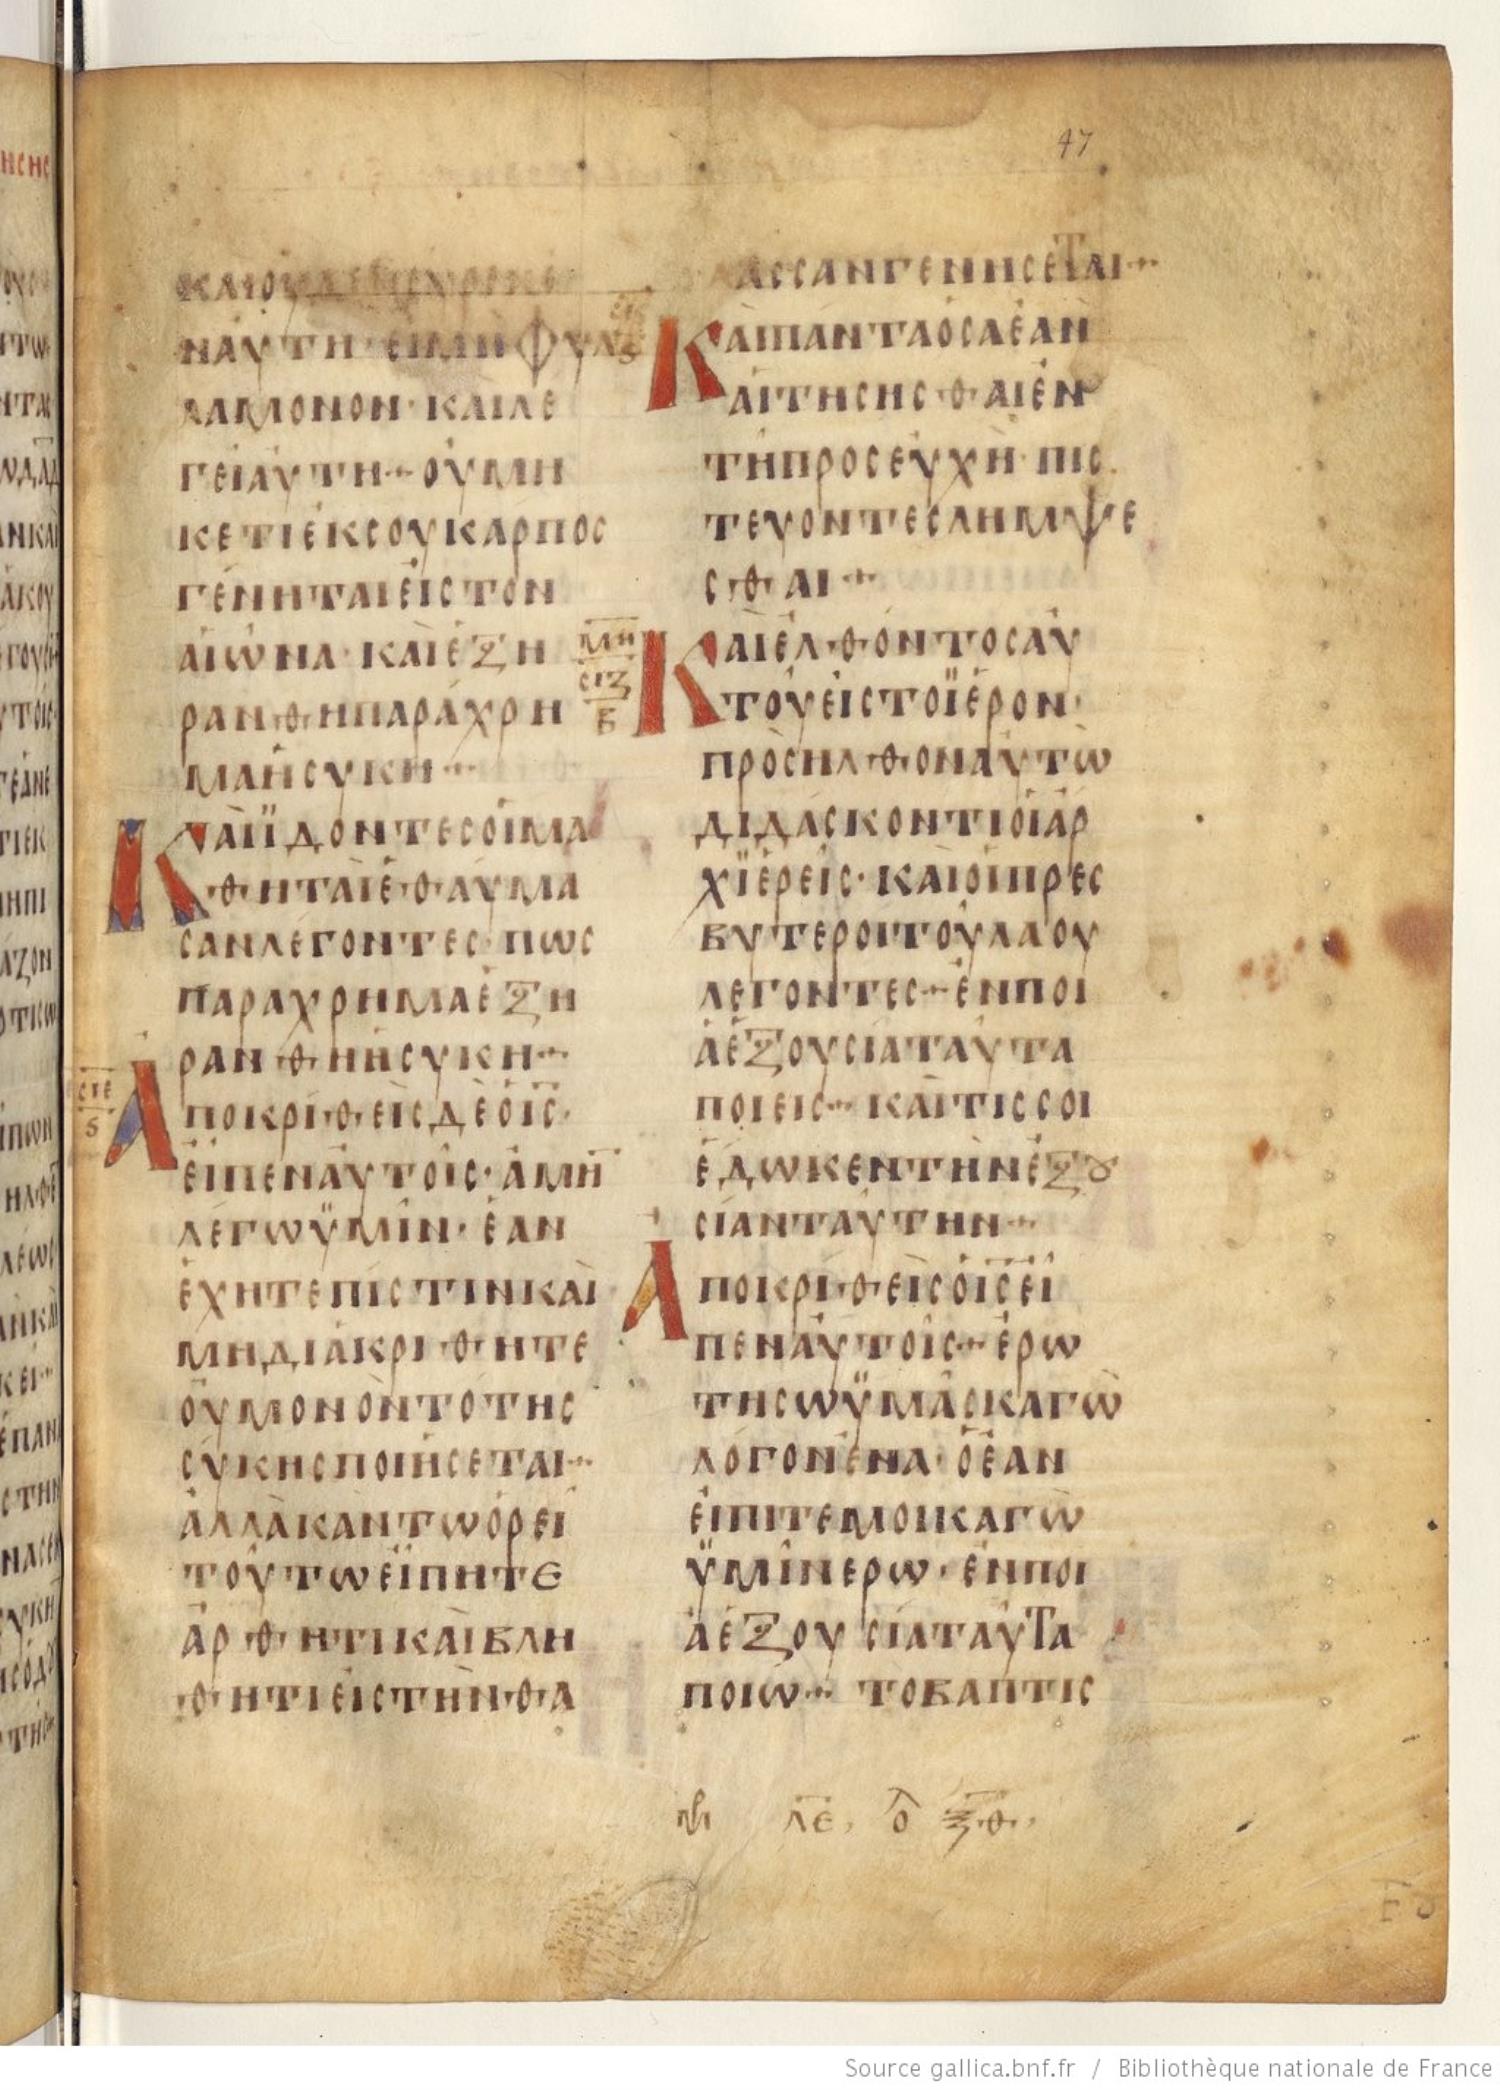 47
ΚΑΙΟΥΔΕΝΕΥΡΕΝΕ
ΝΑΥΤΗ· ΕΙΜΗ ΦΥΛ
ΛΑΜΟΝΟΝ· ΚΑΙΛΕ
ΓΕΙΑΥΤΗ· ΟΥΜΗ
ΚΕΤΙΕΚΣΟΥΚΑΡΠΟΣ
ΓΕΝΗΤΑΙΕΙΣΤΟΝ
ΑΙΩΝΑ· ΚΑΙΕΞΗ
ΡΑΝΘΗΠΑΡΑΧΡΗ
ΜΑΗΣΥΚΗ·
ΚΑΙΪΔΟΝΤΕΣΟΙΜΑ
ΘΗΤΑΙΕΘΑΥΜΑ
ΣΑΝΛΕΓΟΝΤΕΣ· ΠΩΣ
ΠΑΡΑΧΡΗΜΑΕΞΗ
ΡΑΝΘΗΗΣΥΚΗ·
ΣΙΕ
Ϛ
ΑΠΟΚΡΙΘΕΙΣΔΕΟΙΣ·
ΕΙΠΕΝΑΥΤΟΙΣ· ΑΜΗ̅
ΛΕΓΩΫΜΙΝ· ΕΑΝ
ΕΧΗΤΕΠΙΣΤΙΝΚΑΙ
ΜΗΔΙΑΚΡΙΘΗΤΕ
ΟΥΜΟΝΟΝΤΟΤΗΣ
ΣΥΚΗΣΠΟΙΗΣΕΤΑΙ·
ΑΛΛΑΚΑΝΤΩΟΡΕΙ
ΤΟΥΤΩΕΙΠΗΤΕ
ΑΡΘΗΤΙΚΑΙΒΛΗ
ΘΗΤΙΕΙΣΤΗΝΘΑ
ΛΑΣΣΑΝΓΕΝΗΣΕΤΑΙ·
ΣΙϚ
Ϛ
ΚΑΙΠΑΝΤΑΟΣΑΕΑΝ
ΑΙΤΗΣΗΣΘΑΙΕΝ
ΤΗΠΡΟΣΕΥΧΗ· ΠΙΣ
ΤΕΥΟΝΤΕΣΛΗΜΨΕ
ΣΘΑΙ·
ΜΗ
ΣΙΖ
Β
ΚΑΙΕΛΘΟΝΤΟΣΑΥ
ΤΟΥΕΙΣΤΟΪΕΡΟΝ·
ΠΡΟΣΗΛΘΟΝΑΥΤΩ
ΔΙΔΑΣΚΟΝΤΙΟΙΑΡ
ΧΪΕΡΕΙΣ· ΚΑΙΟΙΠΡΕΣ
ΒΥΤΕΡΟΙΤΟΥΛΑΟΥ
ΛΕΓΟΝΤΕΣ· ΕΝΠΟΙ
ΑΕΞΟΥΣΙΑΤΑΥΤΑ
ΠΟΙΕΙΣ· ΚΑΙΤΙΣΣΟΙ
ΕΔΩΚΕΝΤΗΝΕΞȢ
ΣΙΑΝΤΑΥΤΗΝ·
ΑΠΟΚΡΙΘΕΙΣΟΙΣ̅ΕΙ
ΠΕΝΑΥΤΟΙΣ· ΕΡΩ
ΤΗΣΩΫΜΑΣΚΑΓΩ
ΛΟΓΟΝΕΝΑ· ΟΕΑΝ
ΕΙΠΙΤΕΜΟΙΚΑΓΩ
ΫΜΙΝΕΡΩ· ΕΝΠΟΙ
ΑΕΞΟΥΣΙΑΤΑΥΤΑ
ΠΟΙΩ· ΤΟΒΑΠΤΙΣ
ΛΕ, Ο ΞΘ
Source gallica.bnf.fr / Bibliothèque nationale de France